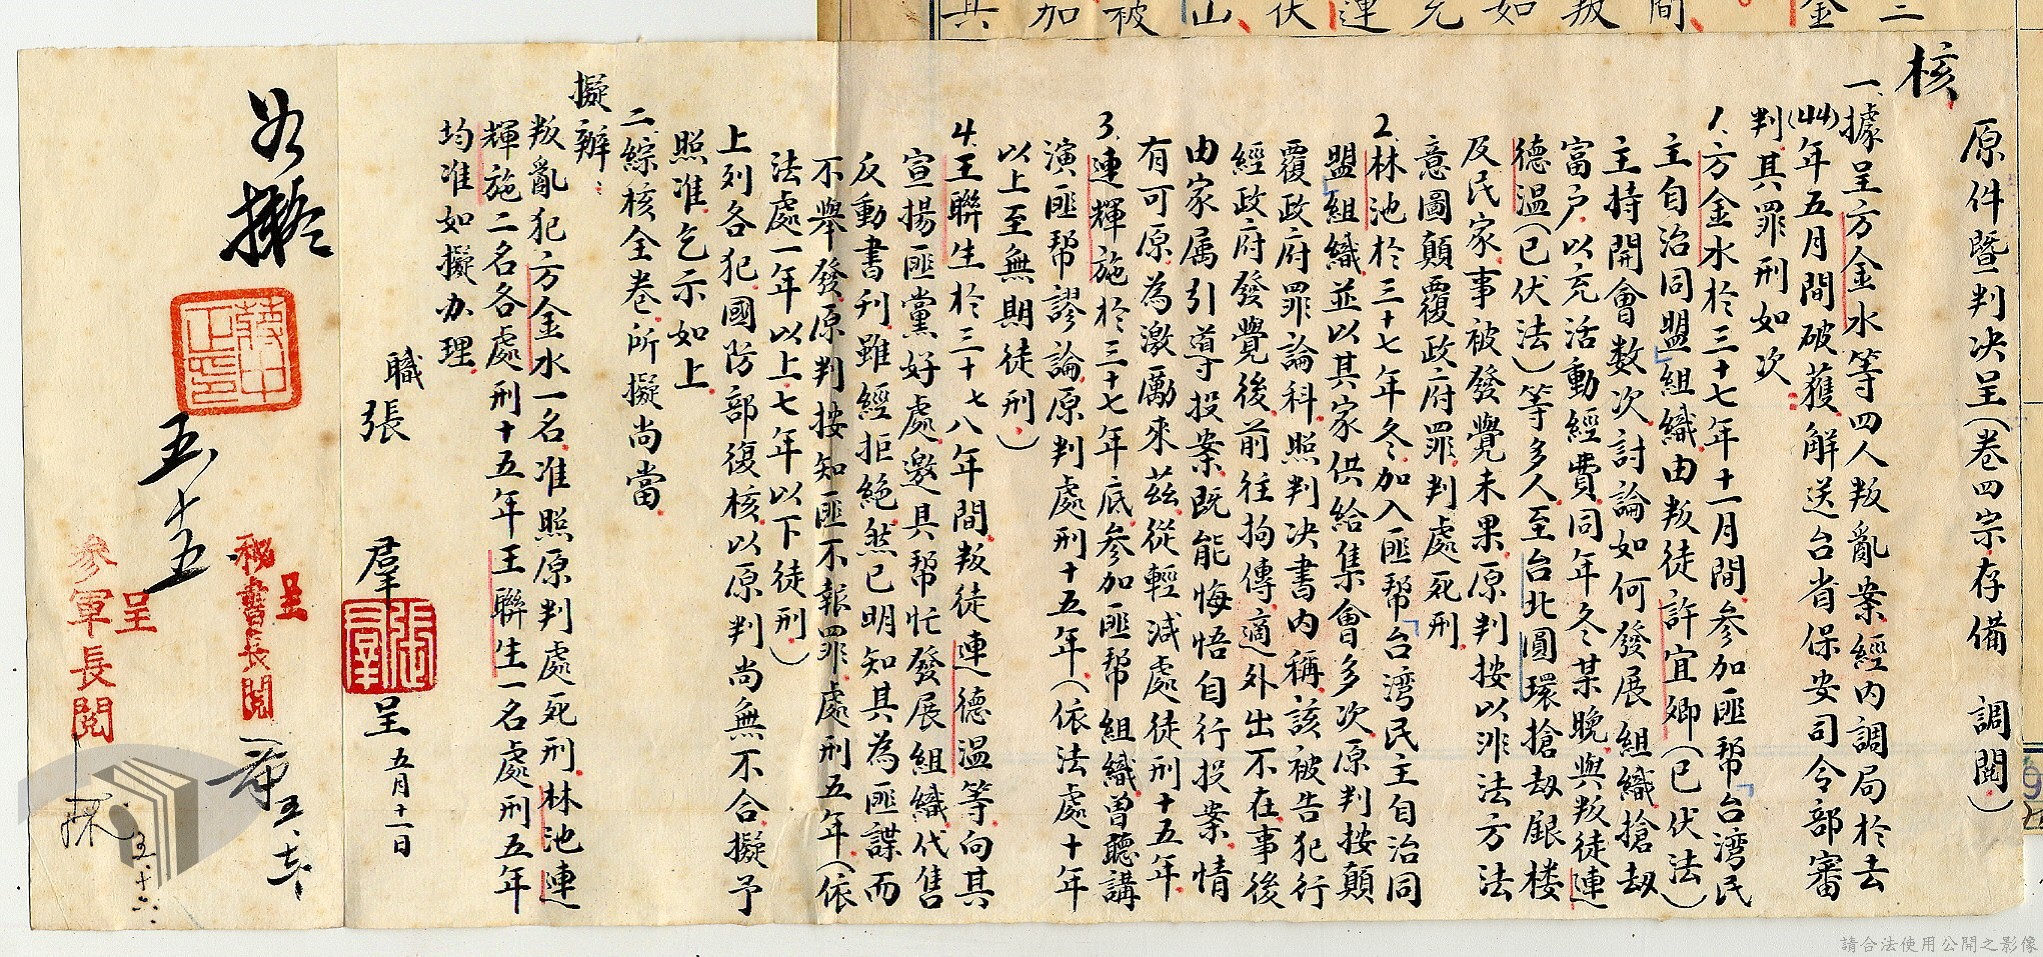 核
原件暨判决呈(卷四宗存備 調閱)
一、據呈方金水等四人叛亂案經內調局於去
(44)年五月間破獲解送台省保安司令部審
判其罪刑如次：
1.方金水於三十七年十一月間參加匪幫「台湾民
主自治同盟」組織由叛徒許宜卿(已伏法)
主持開會数次討論如何發展組織搶劫
富户以充活動經費同年冬某晚與叛徒連
德温(已伏法)等多人至台北圓環搶劫銀楼
及民家事被發覺未果原判按以非法方法
意圖顛覆政府罪判處死刑
2.林池於三十七年冬加入匪幫「台湾民主自治同
盟」組織並以其家供給集會多次原判按顛
覆政府罪論科照判决書內稱該被告犯行
經政府發覺後前往拘傳適外出不在事後
由家属引導投案既能悔悟自行投案情
有可原為激勵來茲從輕減處徒刑十五年
3.連輝施於三十七年底參加匪幫組織曾聽講
演匪幫謬論原判處刑十五年(依法處十年
以上至無期徒刑)
4.王聯生於三十七八年間叛徒連德温等向其
宣揚匪黨好處邀具幫忙發展組織代售
反動書刊雖經拒絶然已明知其為匪諜而
不舉發原判按知匪不報罪處刑五年(依
法處一年以上七年以下徒刑)
上列各犯國防部復核以原判尚無不合擬予
照准乞示如上
二、綜核全卷所擬尚當
擬辦：
叛亂犯方金水一名准照原判處死刑林池連
輝施二名各處刑十五年王聯生一名處刑五年
均准如擬办理
職
張 羣 呈 五月十一日
張羣
如擬
蔣中正印
五十五
呈
秘書長閱
呈
參軍長閱
五.十六.
請合法使用公開之影像